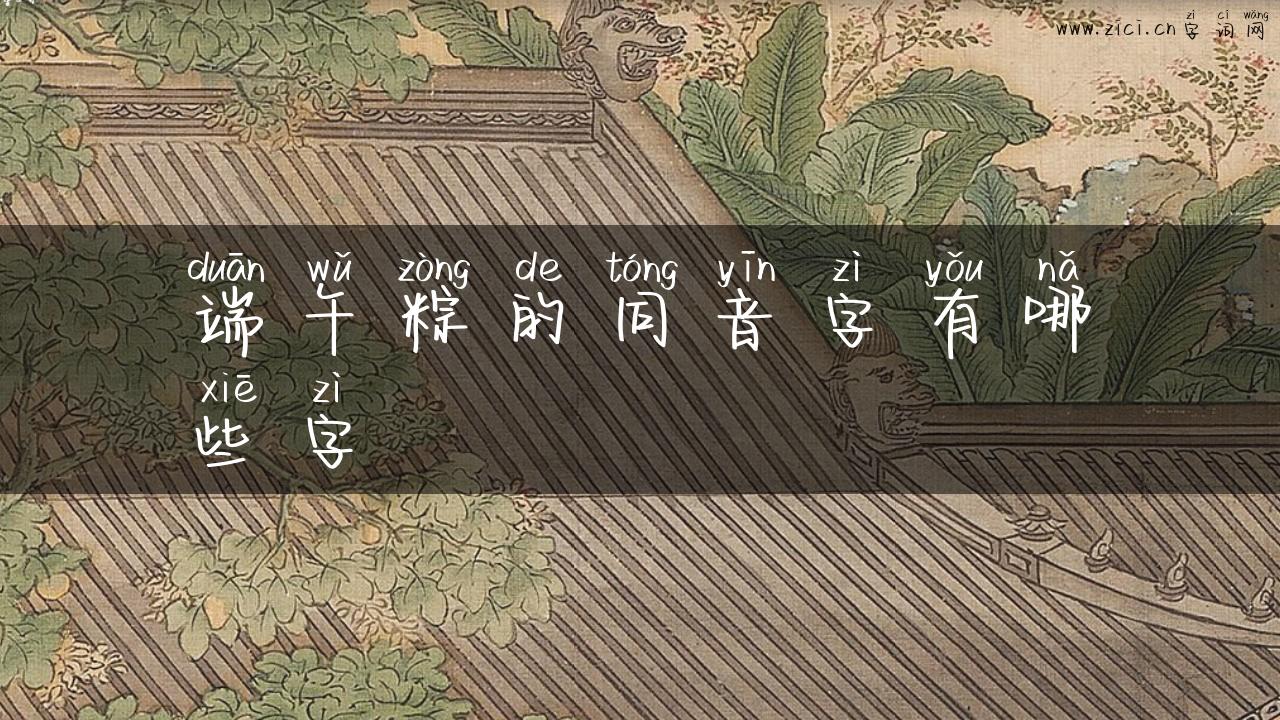 zì cí wǎng
www.zici.cn 字 词 网
duān wǔ zòng de tóng yīn zì yǒu nǎ
端 午 粽 的 同 音 字 有 哪
xiē zì
些 字